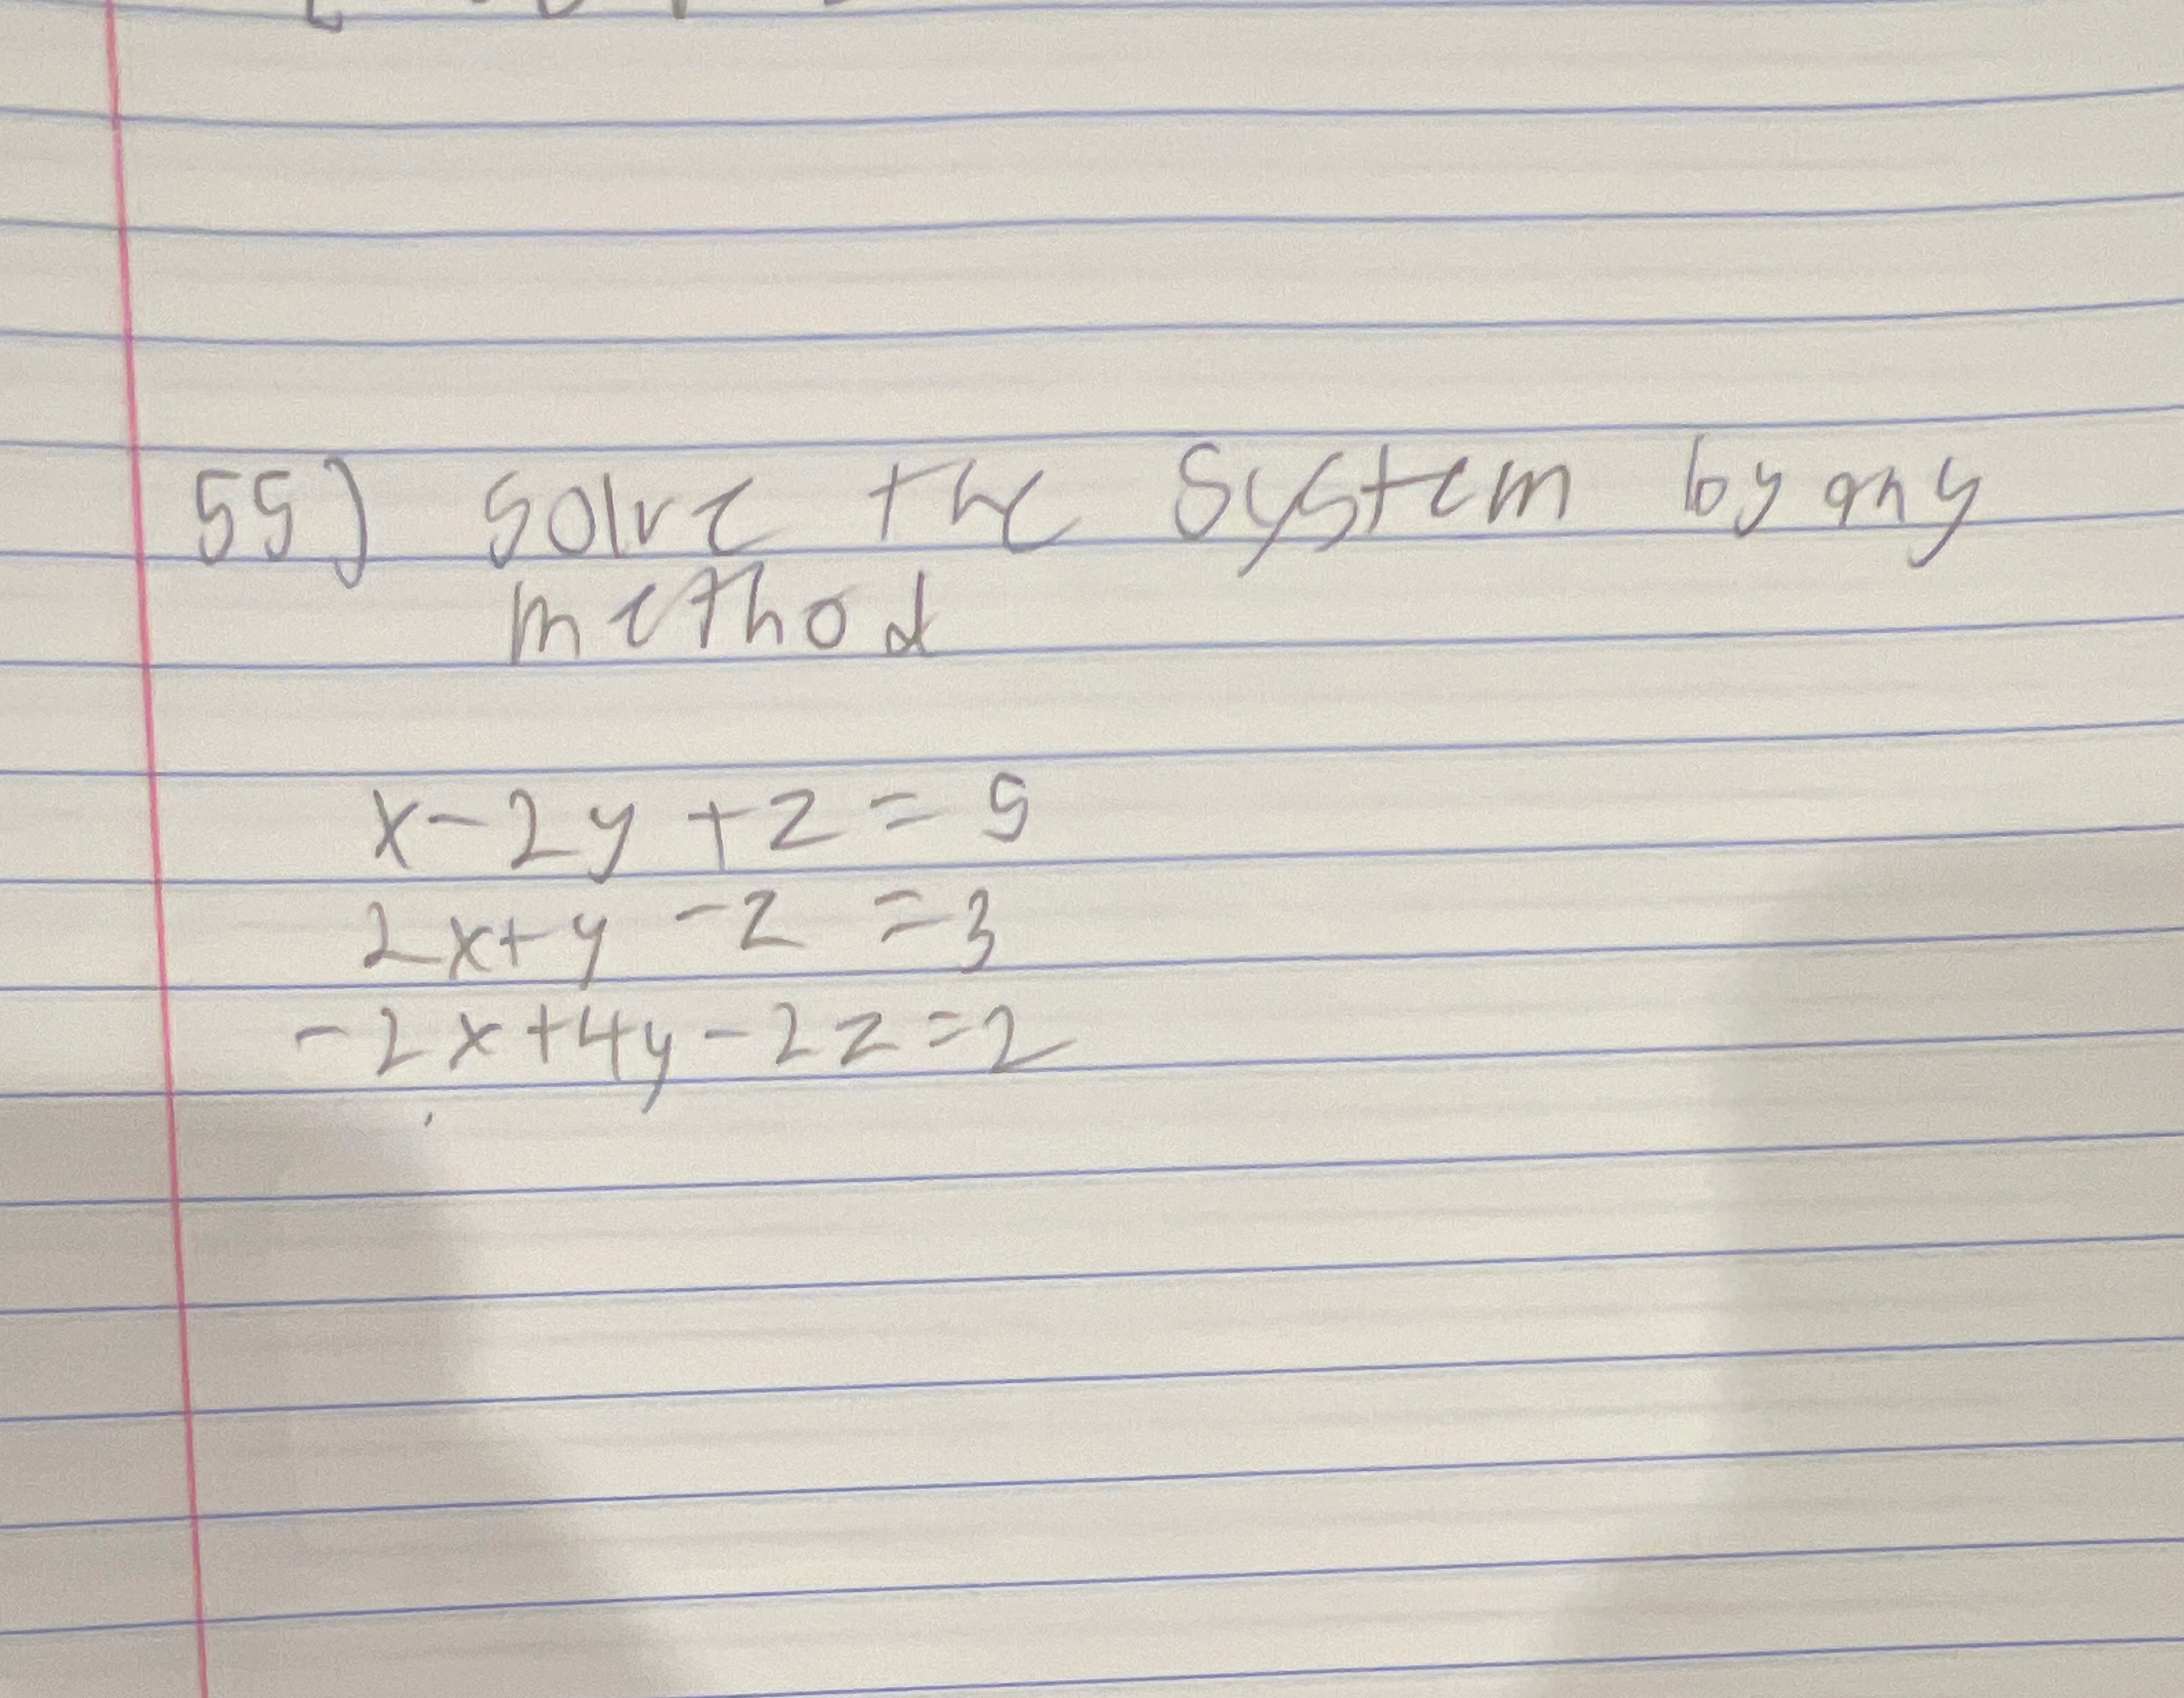 55) solve the system by any
method
x-2y+z=5
2x+y-z=3
-2x+4y-2z=2